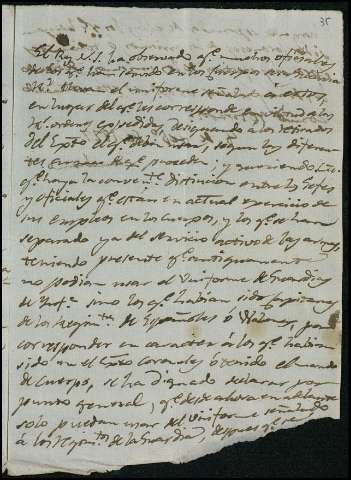 35
El Rey N. S. ha observado q.e muchos oficiales
de los q.e han servido en los Cuerpos
usan el uniforme señalado en estos,
en lugar del q.e les corresponde con arreglo a las
R.s ordenes expedidas, designando a los retirados
del Exto el q.e deben usar, segun las diferentes
de q.e proceden: y queriendo S.M.
q.e haya la conven.te distincion entre los Gefes
y oficiales q.e estan en actual exercicio de
sus empleos en los cuerpos, y los q.e se han
separado ya del servicio activo de las armas,
teniendo presente q.e antiguamente
no podian usar el Uniforme de Guardias
de Inf.a sino los q.e habian sido Capitanes
de los Regim.tos de Españolas o Walonas, para
corresponder en caracter a los q.e habian
sido en el Exto Coroneles o tenido el mando
de Cuerpo, se ha dignado declarar por
punto general, q.e desde ahora en adelante
solo puedan usar del Uniforme señalado
a los Regim.tos de la Guardia, despues q.e